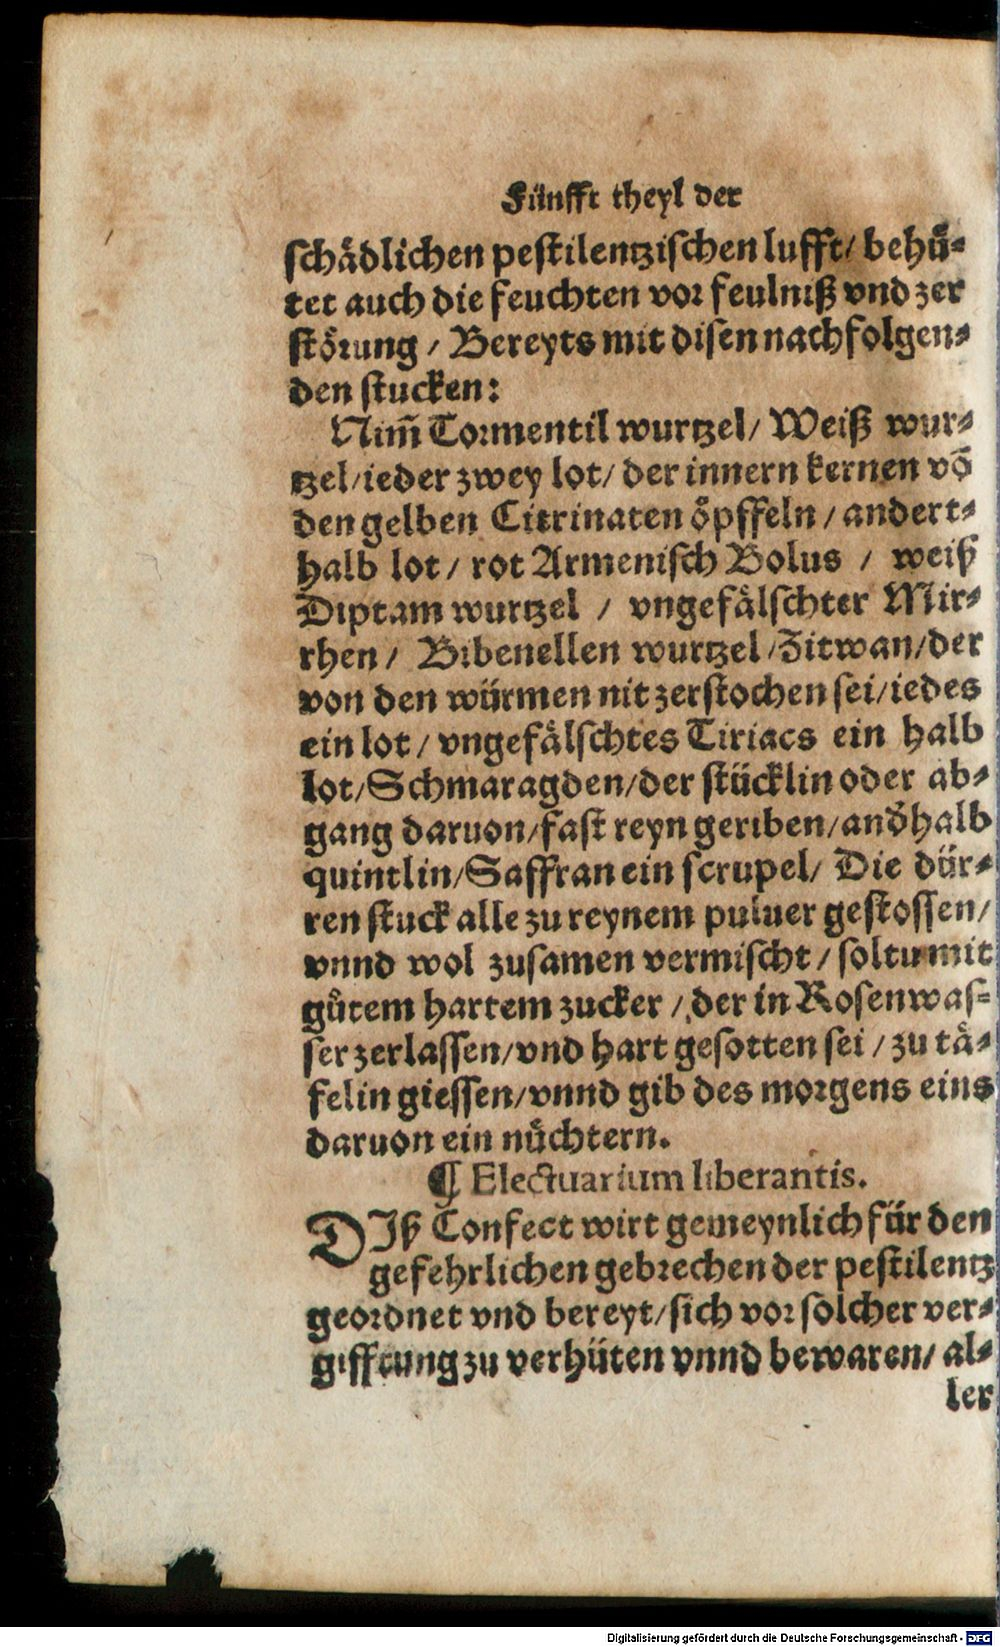 Fünfft theyl der
schådlichen pestilentzischen lufft/ behů-
tet auch die feuchten vor feulniß vnd zer
störung / Bereyts mit disen nachfolgen-
den stucken:
Nim̃ Tormentil wurtzel/ Weiß wur-
tzel/ieder zwey lot/ der innern kernen võ
den gelben Citrinaten öpffeln / andert-
halb lot / rot Armenisch Bolus / weiß
Diptam wurtzel / vngefålschter Mir-
rhen / Bibenellen wurtzel /Zitwan/der
von den würmen nit zerstochen sei/iedes
ein lot / vngefålschtes Tiriacs ein halb
lot/Schmaragden/der stücklin oder ab-
gang daruon/fast reyn geriben/and̕halb
quintlin/Saffran ein scrupel/ Die dür-
ren stuck alle zu reynem puluer gestossen/
vnnd wol zusamen vermischt / soltu mit
gůtem hartem zucker / der in Rosenwas-
ser zerlassen/vnd hart gesotten sei / zu tå-
felin giessen/vnnd gib des morgens eins
daruon ein nůchtern.
¶ Electuarium liberantis.
DIß Confect wirt gemeynlich für den
gefehrlichen gebrechen der pestilentz
geordnet vnd bereyt/sich vor solcher ver-
gifftung zu verhüten vnnd bewaren/ al-
ler
Digitalisierung gefördert durch die Deutsche Forschungsgemeinschaft - DFG